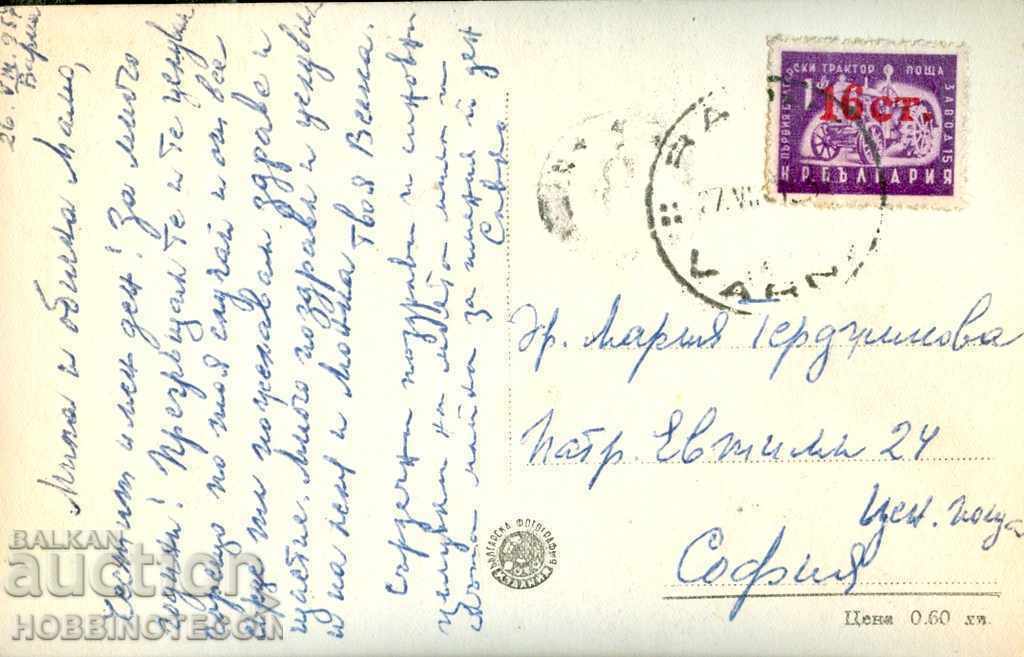 26.VII.957
Варна
Мила и обична Мамо,
Честит имен ден! За много
години! Прегръщам Те и Те целувам
горещо по тоя случай и от все
сърце ти пожелавам здраве и
щастие. Много поздрави и целувки
и на леля и Мойна твоя Венка.
Сърдечни поздрави и синовни
целувки на милата мама и
баба за имения й ден
Слава
БЪЛГАРСКИ ТРАКТОР ПОЩА
ПЪРВИЯ
ЗАВОД 15
16 ст.
Н.Р. БЪЛГАРИЯ
ВАРНА
27.VII
VARNA
Гр. Мария Герджикова
Патр. Евтимий 24
Цен. поща
София
БЪЛГАРСКА ФОТОГРАФИЯ
Цена 0.60 лв.
BALKAN
auction
HOBBINOTES.COM